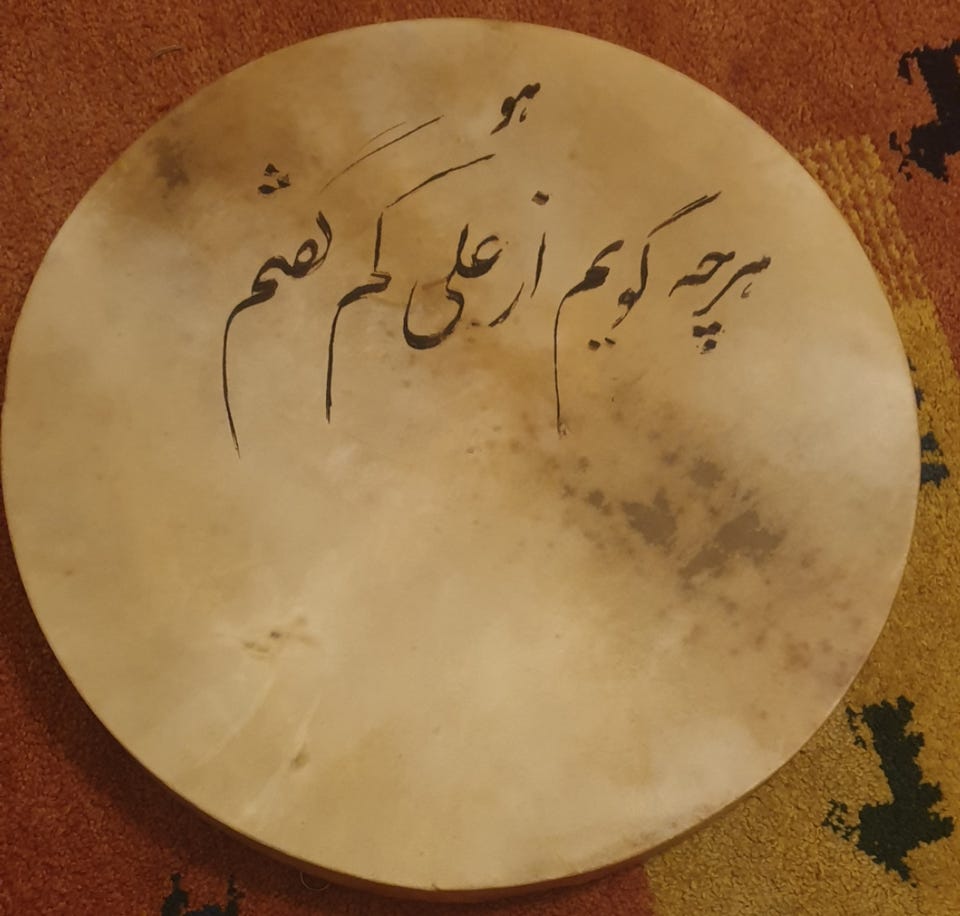 هو
هرچه گویم از علی کم گفتم